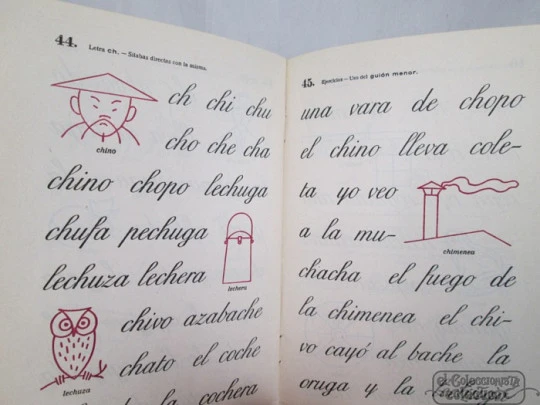 44. Letra ch. – Sílabas directas con la misma.
ch chi chu
chino
cho che cha
chino chopo lechuga
chufa pechuga
lechuza lechera
lechera
chivo azabache
chato el coche
lechuza
la cochera
45. Ejercicios – Uso del guión menor.
una vara de chopo
el chino lleva cole-
ta yo veo
a la mu-
chimenea
chacha el fuego de
la chimenea el chi-
vo cayó al bache la
oruga y la
el Coleccionista